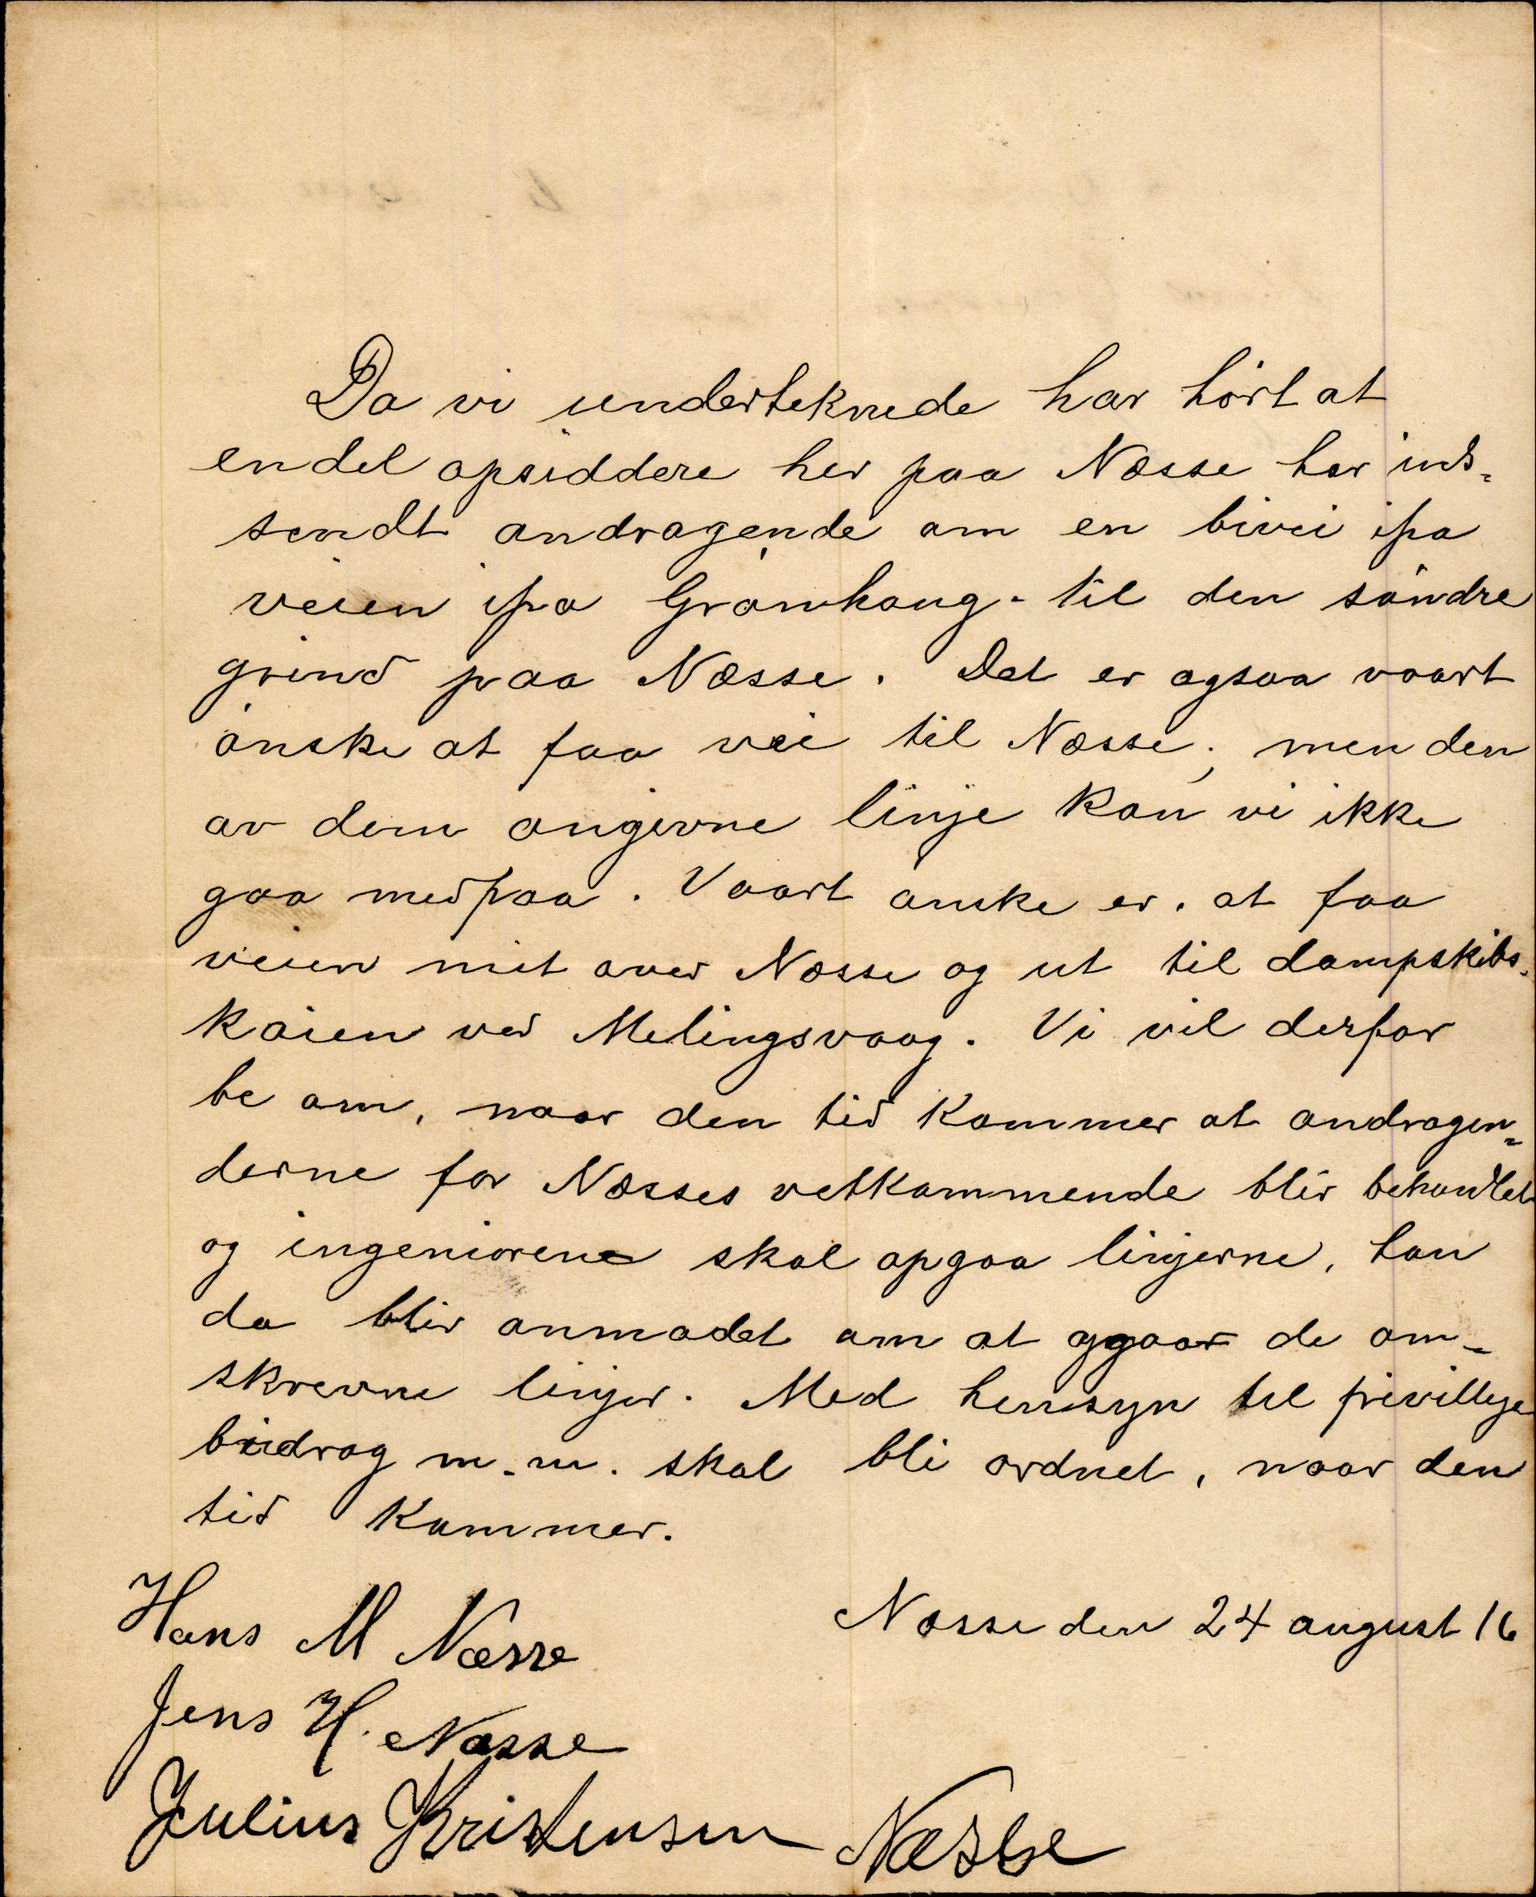 Da vi underteknede har hørt at
endel opsiddere her paa Næsse har ind-
sendt andragende om en bivei ifra
veien ifra Grønhaug - til den søndre
grind paa Næsse. Det er ogsaa vaart
ønske at faa vei til Næsse; men den
av dem angivne linje kan vi ikke
gaa med paa. Vaart ønske er. at faa
veien mit over Næsse og ut til dampskibs-
kaien ved Melingsvaag. Vi vil derfor
be om, naar den tid kommer at andragen-
derne for Næsses vetkommende blir behandlet
og ingeniørene skal opgaa linjerne, han
da blir anmodet om at opgaar de om-
skrevne linjer. Med hensyn til frivillige
bidrag m.m. skal bli ordnet, naar den
tid kommer.
Næsse den 24 august 16
Hans M Næsse
Jens H. Næsse
Julius Kristensen Næsse